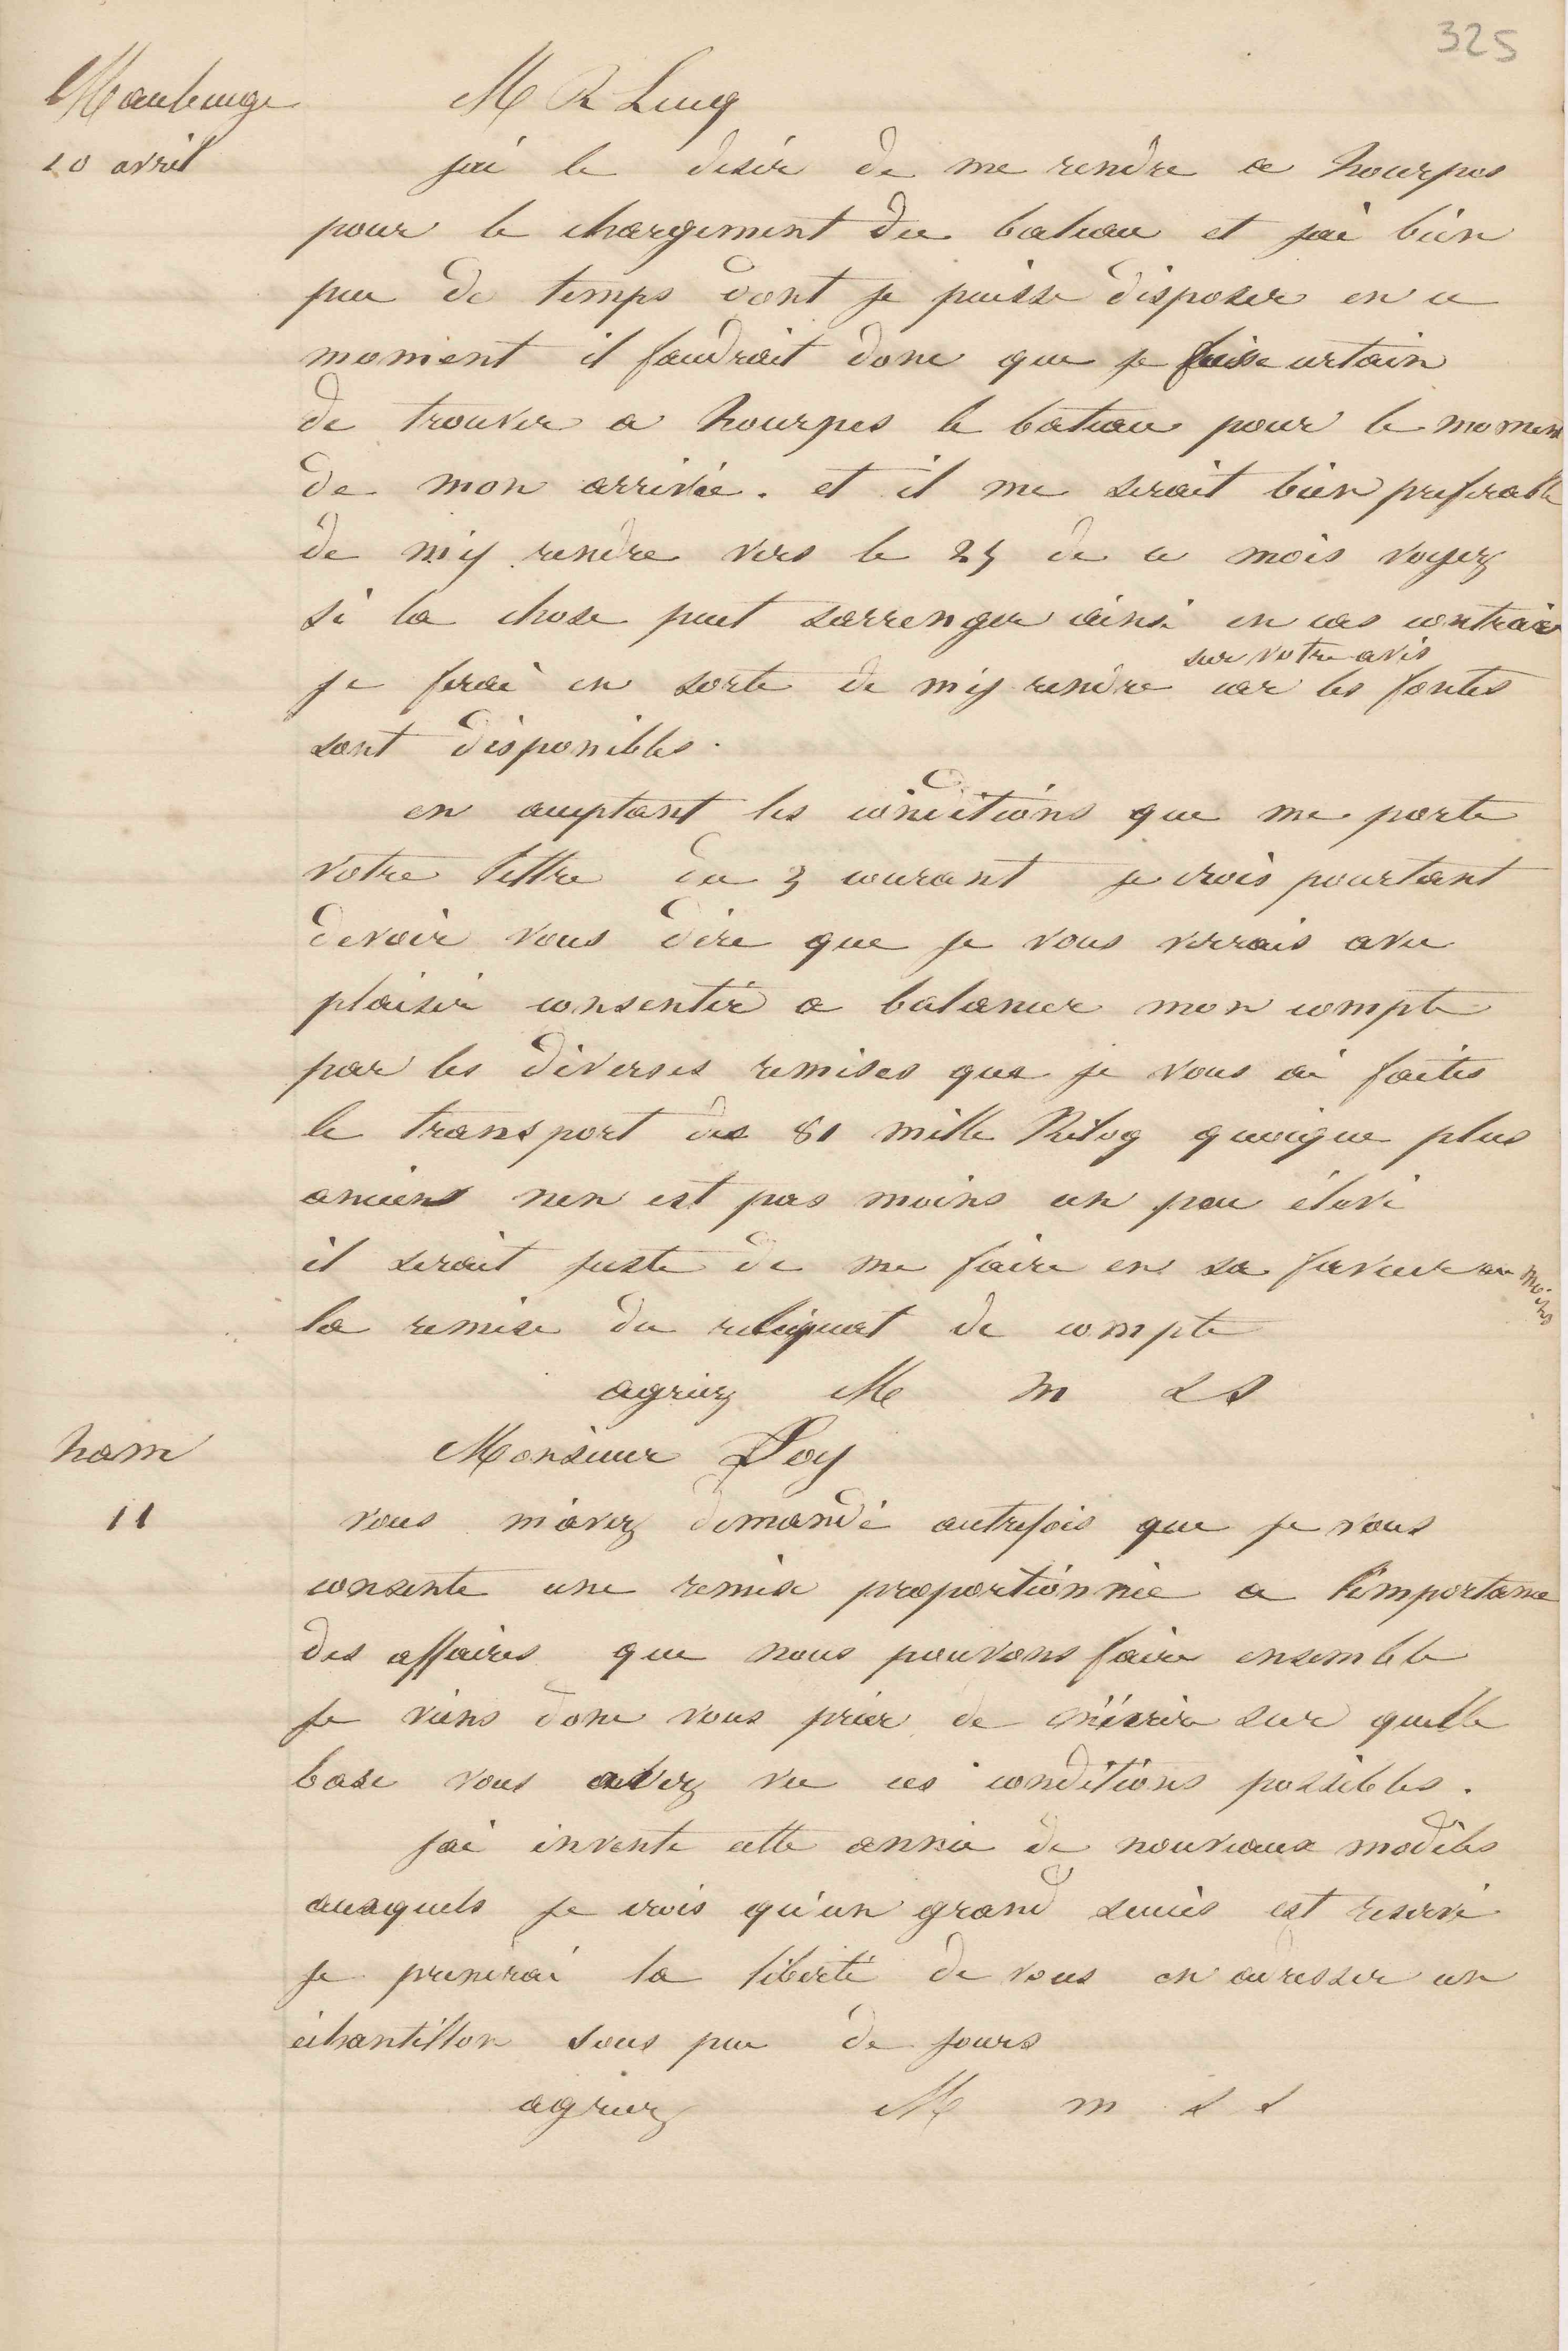 325
Maubeuge
M R Lucq
10 avril
jai le desir de me rendre a hourpes
pour le chargement du bateau et jai bien
peu de temps dont je puisse disposer en ce
moment il faudrait donc que je fusse certain
de trouver a hourpes le bateau pour le moment
de mon arrivée. et il me serait bien preferable
de m'y rendre vers le 25 de ce mois voyez
si la chose peut sarrenger ainsi en cas contraire
sur votre avis
je ferai en sorte de m'y rendre car les fontes
sont disponibles.
en acceptant les conditions que me porte
votre lettre du 3 courant je crois pourtant
devoir vous dire que je vous verrais avec
plaisir consentir a balancer mon compte
par les diverses remises que je vous ai faites
le transport des 81 mille Kilog quoique plus
anciens nen est pas moins un peu élevé
il serait juste de me faire en sa faveur au moins
la remise du reliquat de compte
agréez M m s s
ham
Monsieur Foy
11
vous m'avez demandé autrefois que je vous
consente une remise proportionnée a l'importance
des affaires que nous pouvons faire ensemble
je viens donc vous prier de m'écrire sur quelle
base vous avez vu ces conditions possibles.
jai inventé cette année de nouveaux modèles
auxquels je crois qu'un grand succès est reservé
je prenerai la liberté de vous en adresser un
échantillon sous peu de jours
agréez M m s s